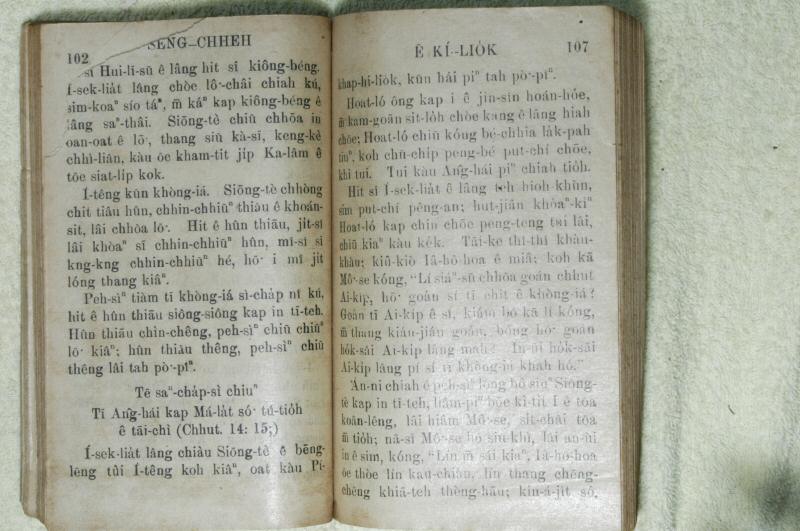 102
SÈNG-CHHEH
sī Hui-lī-sū ê lâng hit sî kiông-béng.
Í-sek-lia̍t lâng chòe lô͘-châi chiah kú,
sim-koaⁿ sío táⁿ, m̄ káⁿ kap kiông-béng ê
lâng saⁿ-thâi. Siōng-tè chiū chhōa in
oan-oat ê lō͘, thang siū kà-sī, keng-kè
chhì-liān, kàu òe kham-tit ji̍p Ka-lâm ê
tōe siat-li̍p kok.
Í-têng kūn khòng-iá. Siōng-tè chhòng
chi̍t tiâu hûn, chhin-chhiūⁿ thiāu ê khoán-
sit, lâi chhōa lō͘. Hit ê hûn thiāu, ji̍t-sî
lâi khòaⁿ sī chhin-chhiūⁿ hûn, mî-sî sī
kng-kng chhin-chhiūⁿ hé, hō͘ i mî ji̍t
lóng thang kiâⁿ.
Peh-sìⁿ tiàm tī khòng-iá sì-cha̍p nî kú,
hit ê hûn thiāu siông-siông kap in tī-teh.
Hûn thiāu chìn-chêng, peh-sìⁿ chiū chiūⁿ
lō͘ kiâⁿ; hûn thiāu thêng, peh-sìⁿ chiū
thêng lâi tah pò͘-pîⁿ.
Tē saⁿ-cha̍p-sì chiuⁿ
Tī Âng-hái kap Má-la̍t só͘ tú-tio̍h
ê tāi-chì (Chhut. 14: 15;)
Í-sek-lia̍t lâng chiàu Siōng-tè ê bēng-
lēng tùi Í-têng koh kiâⁿ, oat kàu Pí-
Ê KÌ-LIO̍K
107
khap-hi-lio̍k, kūn hái piⁿ tah pò͘-pîⁿ.
Hoat-ló ông kap i ê jîn-sîn hoán-hóe,
m̄ kam-goān sit-lo̍h chōe kang ê lâng hiah
chōe; Hoat-ló chiū kóng bé-chhia la̍k-pah
tīnⁿ, koh chū-chi̍p peng-bé put-chí chōe,
khì tui. Tui kàu Âng-hái piⁿ chiah tio̍h.
Hit sî Í-sek-lia̍t ê lâng teh hioh-khùn,
sim put-chí pêng-an; hut-jiân khòaⁿ-kìⁿ
Hoat-ló kap chin chōe peng-teng tsi lâi,
chiū kiaⁿ kàu ke̍k. Tāi-ke thî-thî khàu-
khàu; kiû-kiò Iâ-hô-hoa ê miâ; koh kā
Mô͘-se kóng, “Lí siáⁿ-sū chhōa goán chhut
Ai-ki̍p, hō͘ goán sí tī chit ê khòng-iá?
Goán tī Ai-ki̍p ê sî, kiám bô kā lí kóng,
m̄ thang kiáu-jiáu goán, bóng hō͘ goán
ho̍k-sāi Ai-ki̍p lâng mah? In-ūi ho̍k-sāi
Ai-ki̍p lâng pí sí tī khòng-iá khah hó.”
Án-ni chiah ê peh-sìⁿ lóng bô siūⁿ Siōng-
tè kap in tī-teh, liām-pîⁿ bōe kì-tit I ê tōa
koân-lêng, lâi hiâm Mô͘-se, sit-chāi tōa
m̄ tio̍h; nā-sī Mô͘-se bô siū-khì, lâi an-ùi
in ê sim, kóng, “Lín m̄ sái kiaⁿ, Iâ-hô-hoa
òe thòe lín kau-chiàn, lín thang chēng-
chēng khiā-teh thèng-hāu; kin-á-ji̍t só͘,